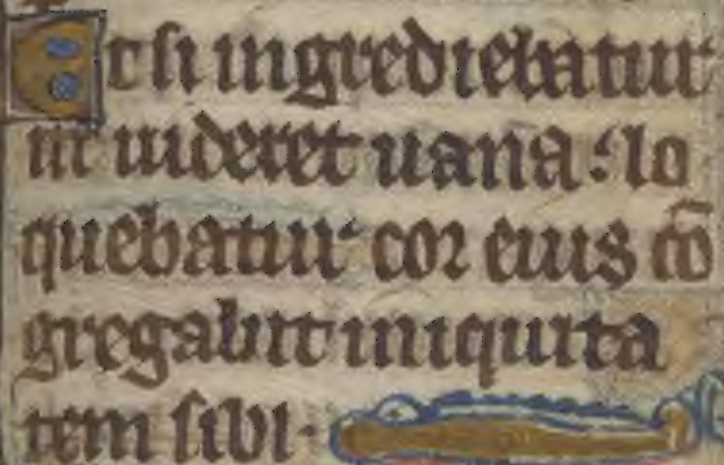 Et si ingrediebatur
ut uideret uana : lo
quebatur cor eius cō
gregauit iniquita
tem sibi ·